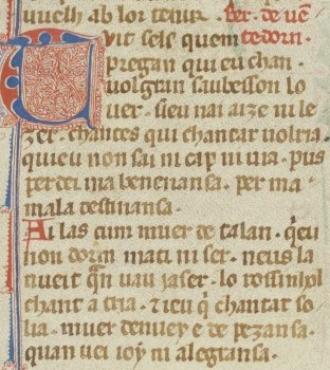 uuelh ab lor tenir . Ber . de uē
tedorn .
Tuit cels quem
pregan qui eu chan .
uolgran saubesson lo
uer . sieu nai aize ni le
zer . chantes qui chantar uolria
quieu non sai ni cap ni uia . pus
perdei ma benenansa . per ma .
mala destinansa .
Ailas cum muer de talan . qeu
non dorm mati ni ser . neus la
nueit qn uau iaser . lo rossinhol
chant a cria . z ieu q chantar so
lia . muer denuey e de pezansa .
quan uei ioy ni alegransa .